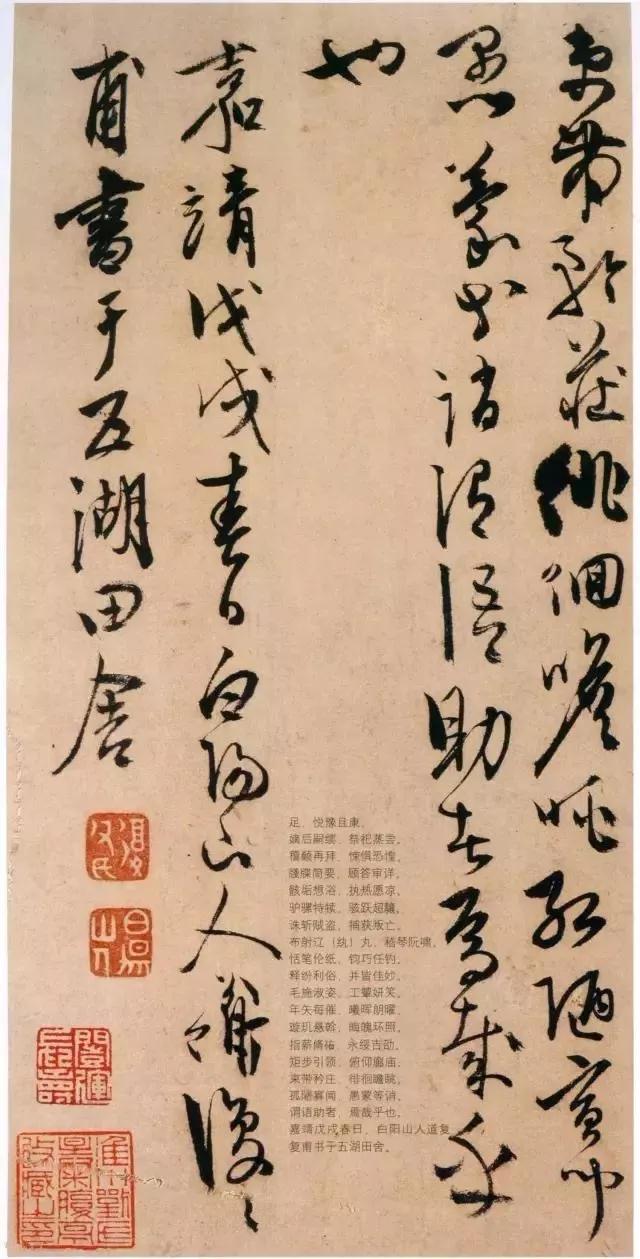 束帶矜莊徘徊瞻眺孤陋寡聞
愚蒙等誚謂語助者焉哉乎
也
嘉靖戊戌春日白陽山人道復〻
甫書于五湖田舍
足，悦豫且康。
嫡后嗣续，祭祀蒸尝。
稽颡再拜，悚惧恐惶。
笺牒简要，顾答审详。
骸垢想浴，执热愿凉。
驴骡特犊，骇跃超骧。
诛斩贼盗，捕获叛亡。
布射辽（纨）丸，嵇琴阮啸。
恬笔伦纸，钧巧任钓。
释纷利俗，并皆佳妙。
毛施淑姿，工颦妍笑。
年矢每催，曦晖朗曜。
璇玑悬斡，晦魄环照。
指薪脩祜，永绥吉劭。
矩步引领，俯仰廊庙。
束带矜庄，徘徊瞻眺。
孤陋寡闻，愚蒙等诮。
谓语助者，焉哉乎也。
嘉靖戊戌春日，白阳山人道复
复甫书于五湖田舍。